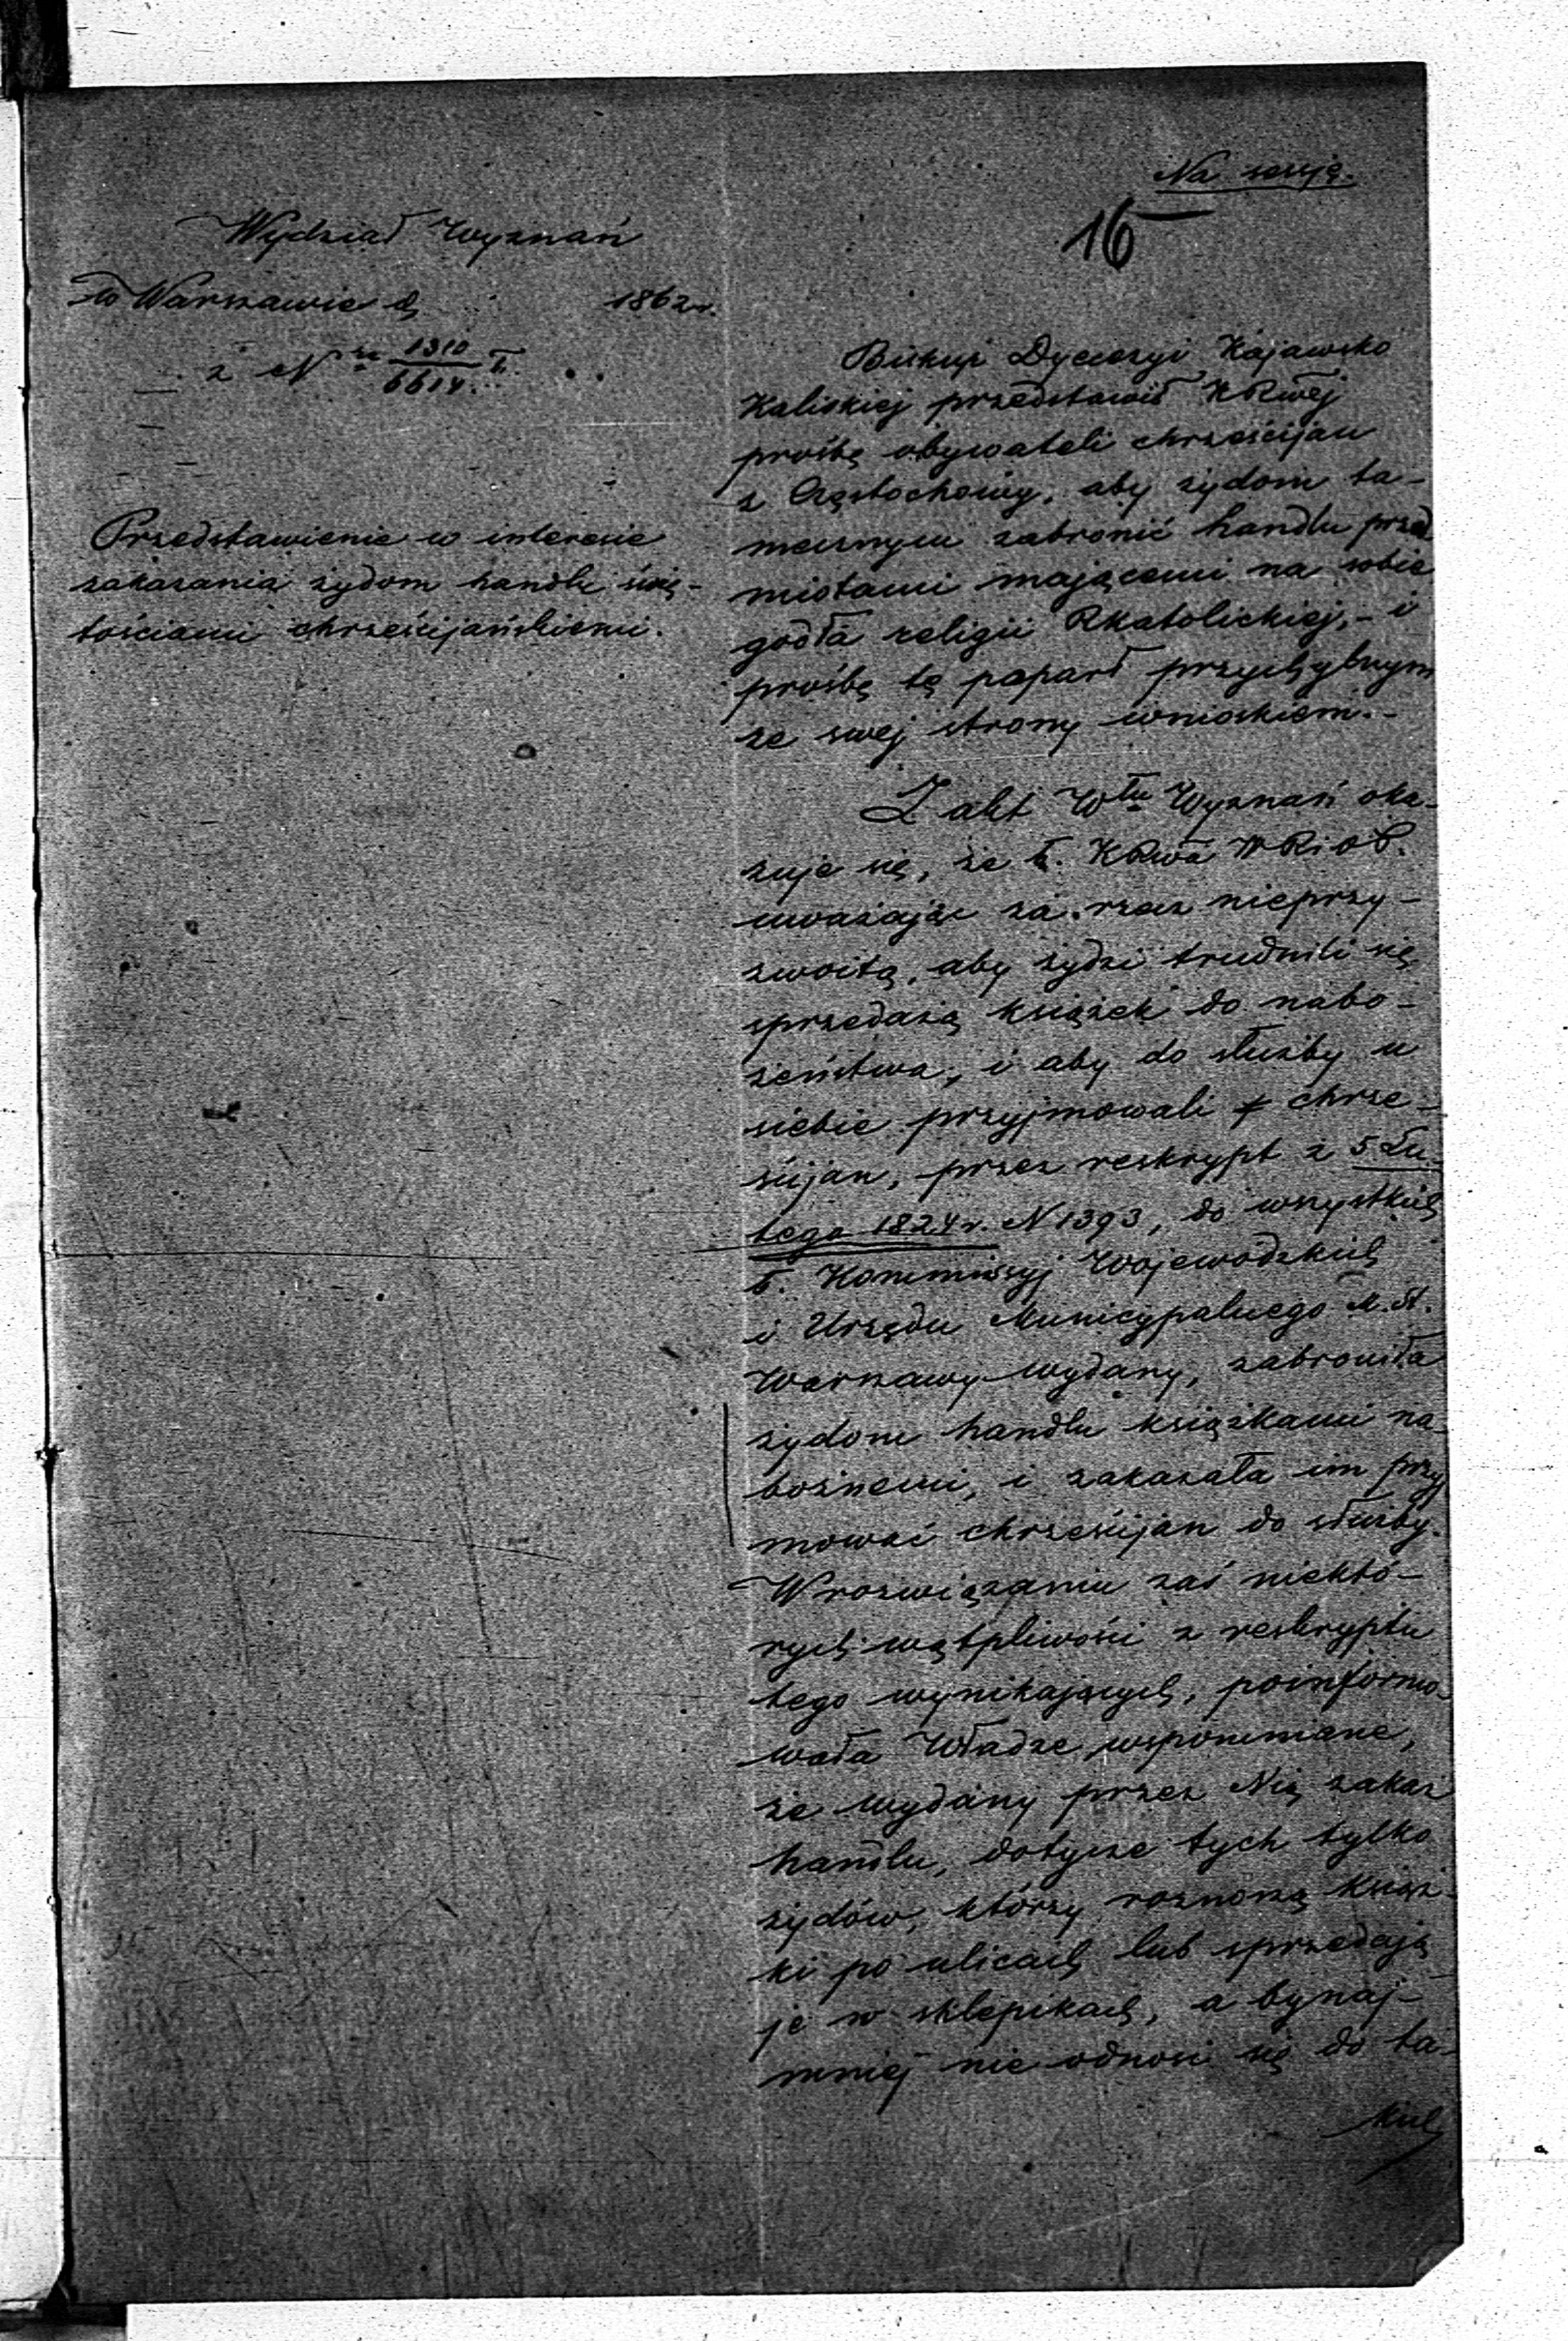 Na sesyję.
16
Wydział Wyznań
w Warszawie d. 1862 r.
z Nru 1310/6614
Przedstawienie w interesie
zakazania żydom handlu świę-
tościami chrześcijańskiemi.
Biskup Dyecezyi Kujawsko
Kaliskiej przedstawił KRwej
prośbę obywateli chrześcijan
z Częstochowy, aby żydom ta-
mecznym zabronić handlu przed
miotami mającemi na sobie
godła religii Rkatolickiej, - i
prośbę tę poparł przychylnym
ze swej strony wnioskiem. -
Z akt Włu Wyznań oka-
zuje się, że b. KRwa WRiOP.
uważając za rzecz nieprzy-
zwoitą, aby żydzi trudnili się
sprzedażą książek do nabo-
żeństwa, i aby do służby u
siebie przyjmowali chrze-
ścijan, przez reskrypt z 5 Lu-
tego 1824 r. N 1393, do wszystkich
b. Kommissyj Wojewodzkich
i Urzędu Municypalnego M. St.
Warszawy wydany, zabroniła
żydom handlu książkami na-
bożnemi, i zakazała im przy
mować chrześcijan do służby.
W rozwiązaniu zaś niektó-
rych wątpliwości z reskryptu
tego wynikających, poinformo-
wała Władze wspomniane,
że wydany przez Nią zakaz
handlu, dotycze tych tylko
żydów, którzy roznoszą książ-
ki po ulicach lub sprzedają
je w sklepikach, a bynaj-
mniej nie odnosi się do ta-
kich